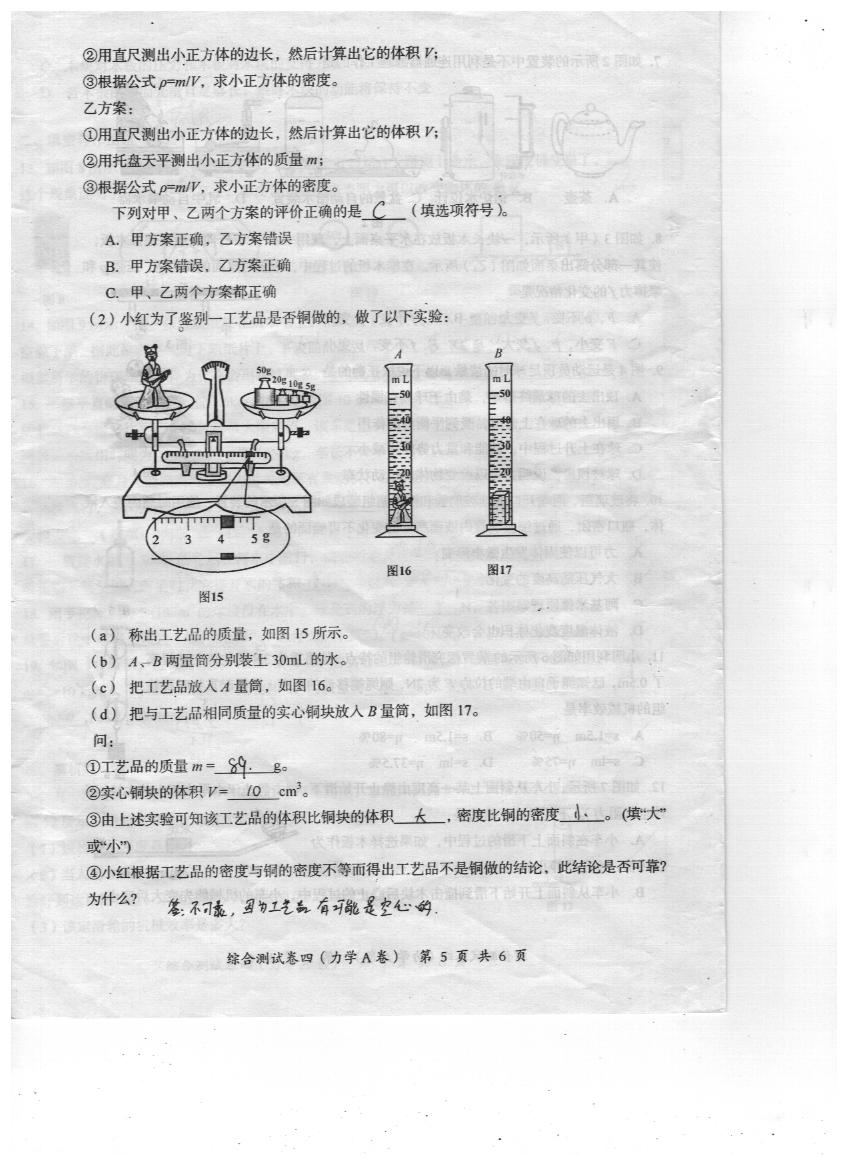 ②用直尺测出小正方体的边长，然后计算出它的体积 V；
③根据公式 ρ=m/V，求小正方体的密度。
乙方案：
①用直尺测出小正方体的边长，然后计算出它的体积 V；
②用托盘天平测出小正方体的质量 m；
③根据公式 ρ=m/V，求小正方体的密度。
下列对甲、乙两个方案的评价正确的是 C （填选项符号）。
A. 甲方案正确，乙方案错误
B. 甲方案错误，乙方案正确
C. 甲、乙两个方案都正确
（2）小红为了鉴别一工艺品是否铜做的，做了以下实验：
50g 20g 10g 5g
2 3 4 5 g
图15
A
mL
50
40
30
20
图16
B
mL
50
40
30
20
图17
（a） 称出工艺品的质量，如图 15 所示。
（b） A、B 两量筒分别装上 30mL 的水。
（c） 把工艺品放入 A 量筒，如图 16。
（d） 把与工艺品相同质量的实心铜块放入 B 量筒，如图 17。
问：
①工艺品的质量 m = 89. g。
②实心铜块的体积 V = 10 cm³。
③由上述实验可知该工艺品的体积比铜块的体积 大 ，密度比铜的密度 小 。（填“大”
或“小”）
④小红根据工艺品的密度与铜的密度不等而得出工艺品不是铜做的结论，此结论是否可靠？
为什么？
答：不可靠，因为工艺品有可能是空心的.
综合测试卷四（力学 A 卷） 第 5 页 共 6 页